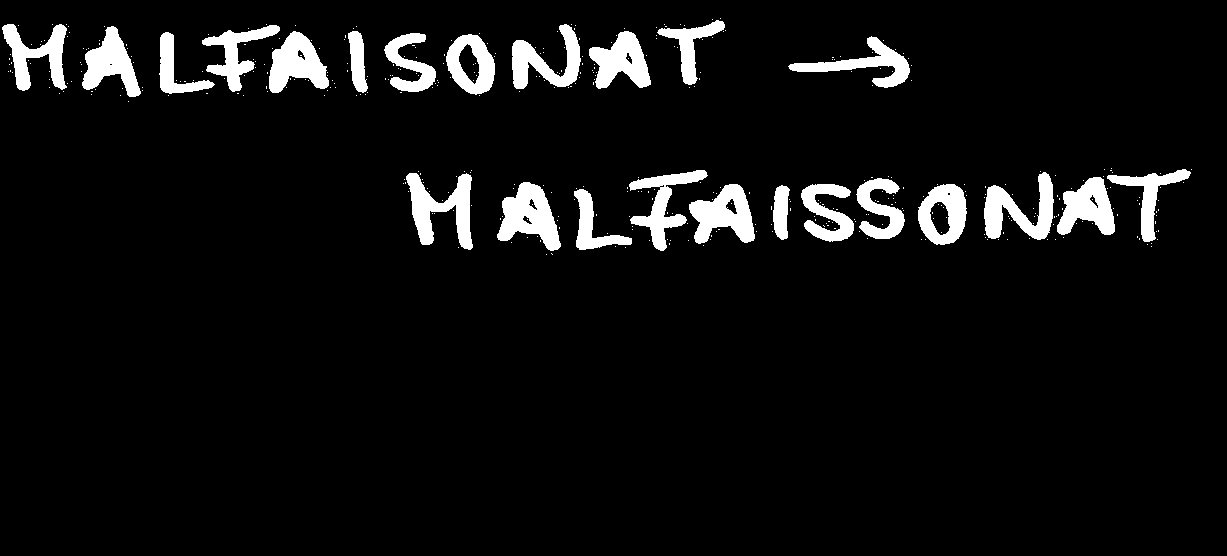 MALFAISONAT →
MALFAISSONAT